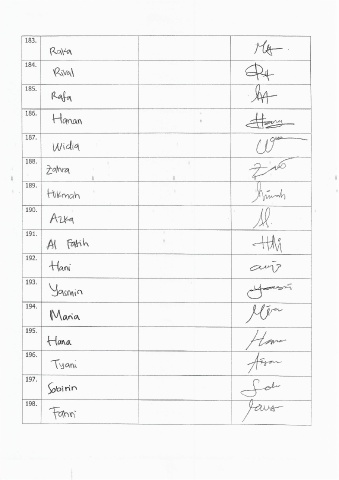 183. Raka
184. Rival
185. Rafa
186. Hanan
187. Widia
188. Zahra
189. Hikmah
190. Azka
191. Al Fatih
192. Hani
193. Yasmin
194. Maria
195. Hana
196. Tyani
197. Sobirin
198. Fahri